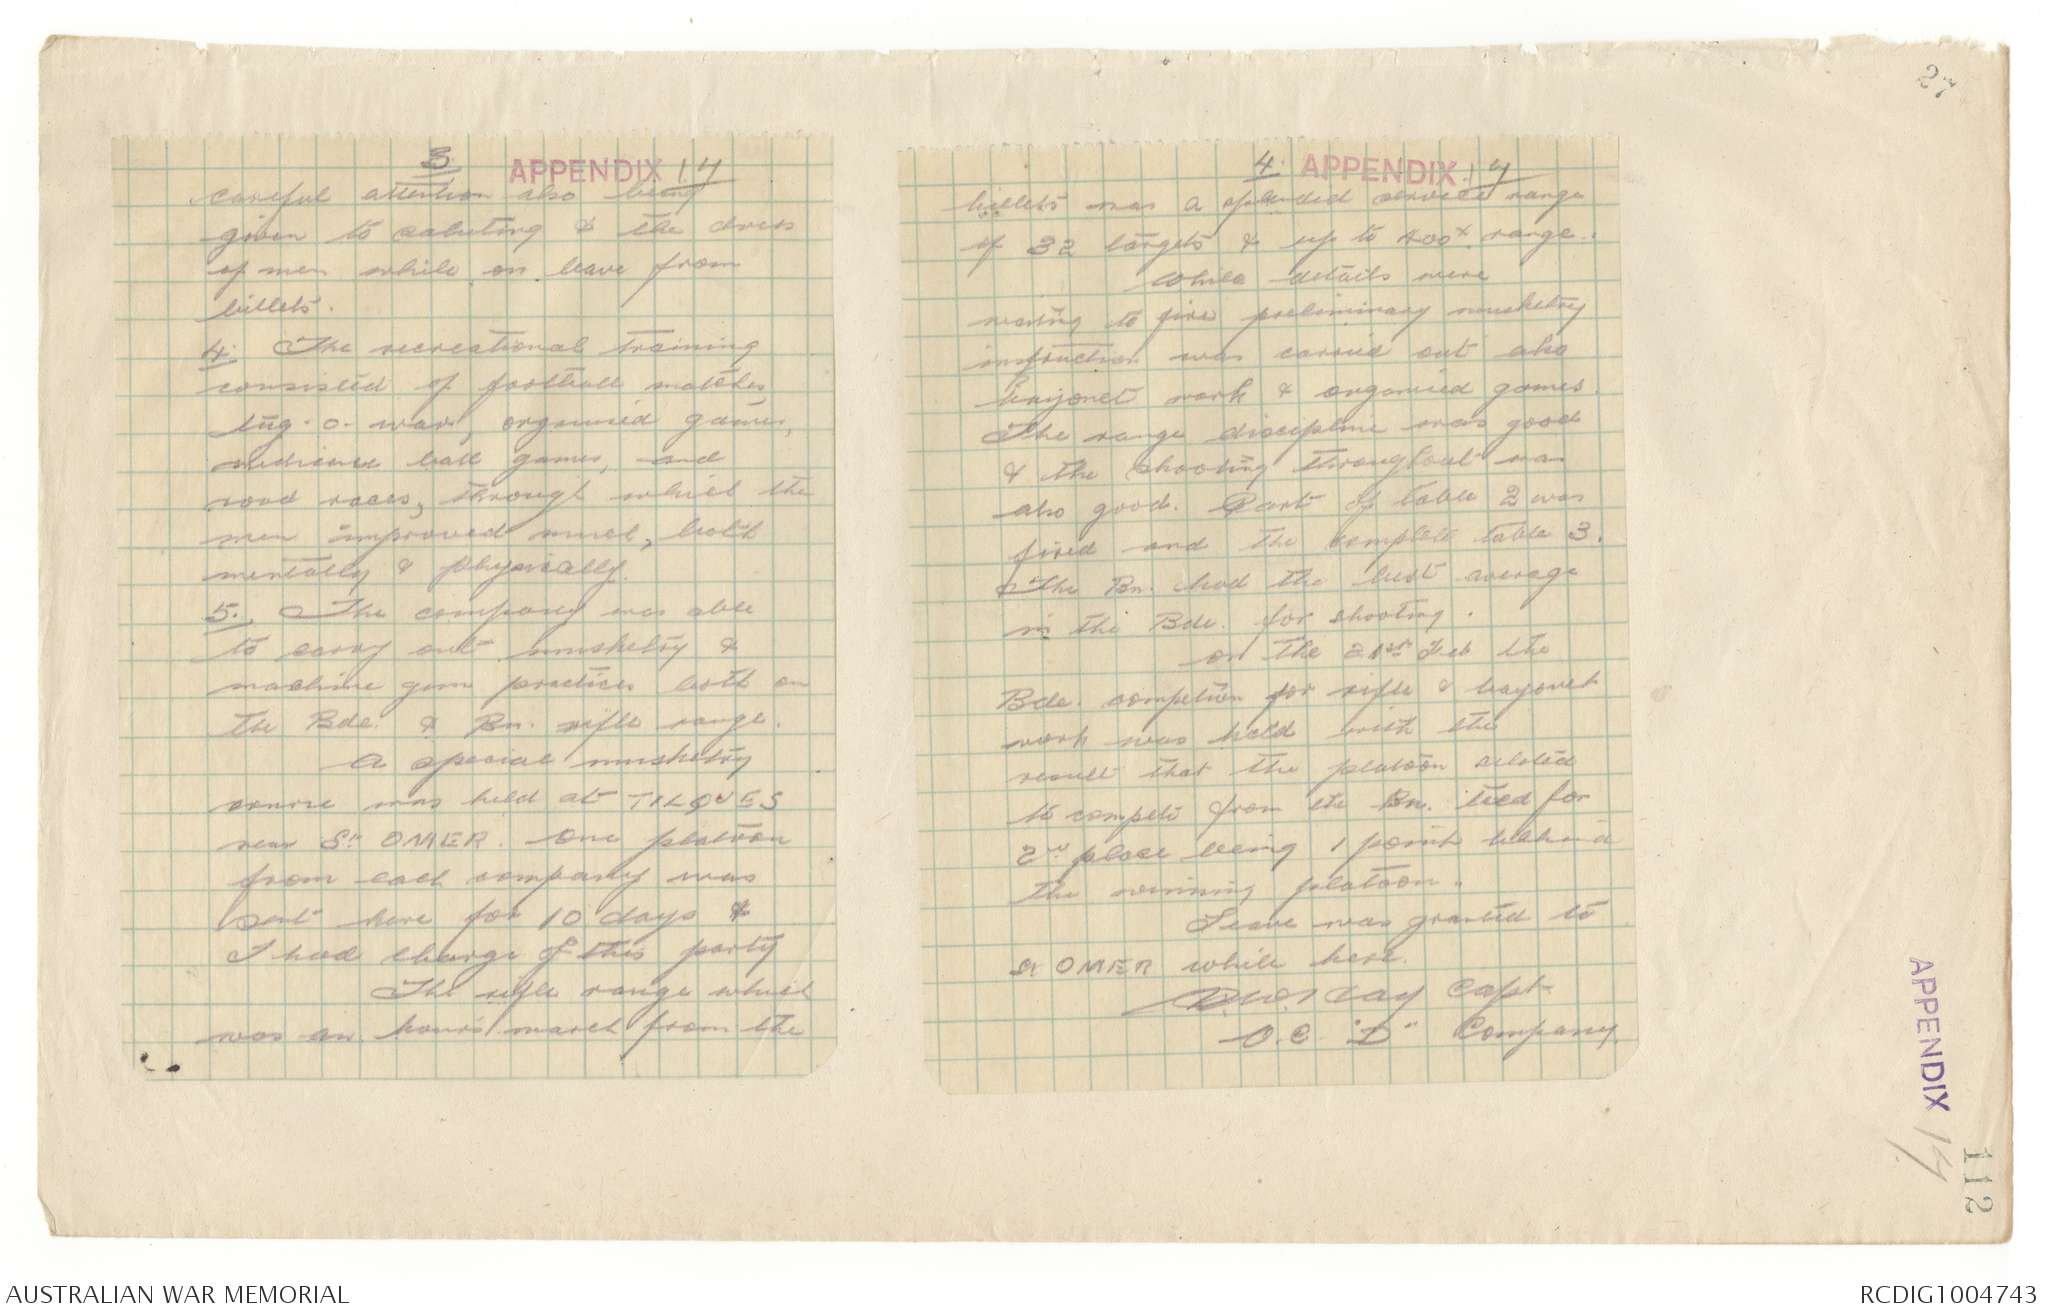 27
3
APPENDIX 14
careful attention also being
given to saluting & the dress
of men while on leave from
billets.
4. The recreational training
consisted of football matches,
tug-o-war, organised games,
medicine ball games, and
road races, through which the
men improved much, both
mentally & physically.
5. The company was able
to carry out musketry &
machine gun practices both on
the Bde. & Bn. rifle range.
A special musketry
course was held at TILQUES
near St OMER. One platoon
from each company was
sent here for 10 days &
I had charge of this party
The rifle range which
was an hours march from the
4. APPENDIX 14
billets was a splendid service range
of 32 targets & up to 400x range.
While details were
waiting to fire preliminary musketry
instruction was carried out also
bayonet work & organised games.
The range discipline was good
& the shooting throughout was
also good. Part of table 2 was
fired and the complete table 3.
The Bn. had the best average
in the Bde. for shooting.
On the 21st Feb the
Bde. competion for rifle & bayonet
work was held with the
result that the platoon seleted
to compete from the Bn. tied for
2nd place being 1 point behind
the winning platoon.
Leave was granted to
St OMER while here.
Capt
O.C. "D" Company
APPENDIX 14
112
AUSTRALIAN WAR MEMORIAL
RCDIG1004743